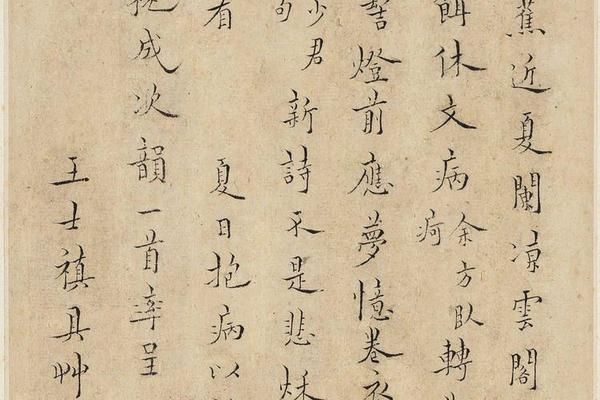 蕉近夏闌凉雲閣
餌休文病余方臥
疴轉
誓燈前應夢憶卷
少君
句新詩不是悲秋
有 夏日抱病以
成次韻一首率呈
王士禛具艸